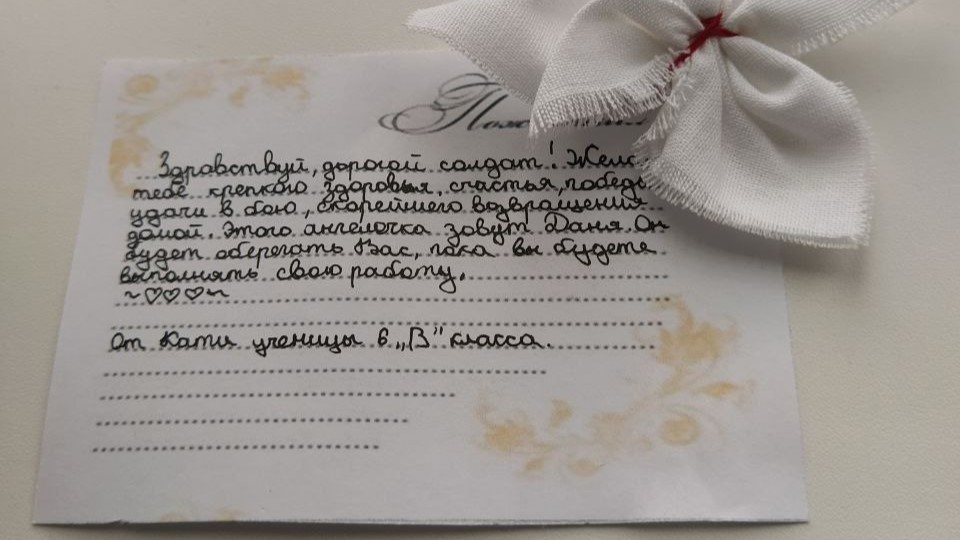 Здравствуй, дорогой солдат!
тебе крепкого здоровья, счастья,
удачи в бою, скорейшего возвращения
домой. Этого ангелочка зовут Даня. Он
будет оберегать Вас, пока вы будете
выполнять свою работу.
~♡♡♡~
От Кати ученицы 6 „В" класса.